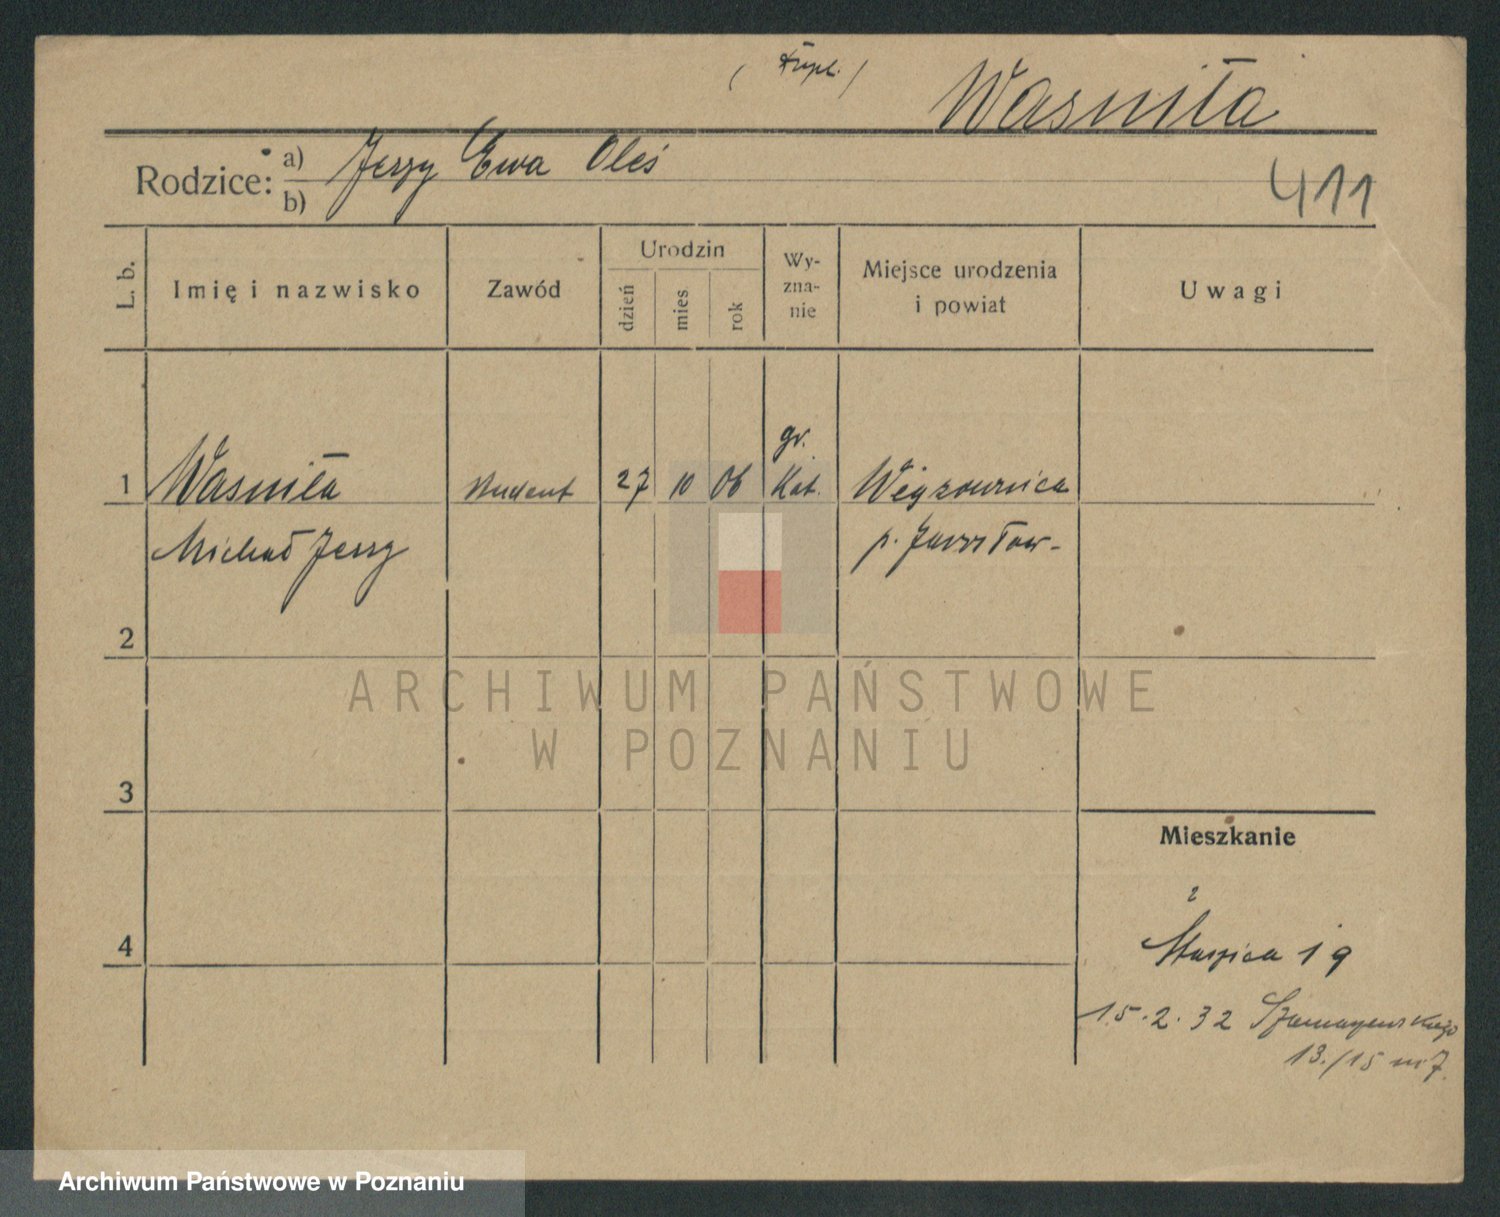 (Dupl.)
Wasniła
Rodzice: a) Jerzy Ewa Oleś
b)
411
L. b.
Imię i nazwisko
Zawód
Urodzin
dzień
mies
rok
Wy-
zna-
nie
Miejsce urodzenia
i powiat
Uwagi
gr.
1 Wasniła student 27 10 06 Kat. Wiązownica
Michał Jerzy p. Jarosław-
2
ARCHIWUM PAŃSTWOWE
W POZNANIU
3
Mieszkanie
4
Staszica 19
15.2.32
13./15 m 7.
Archiwum Państwowe w Poznaniu